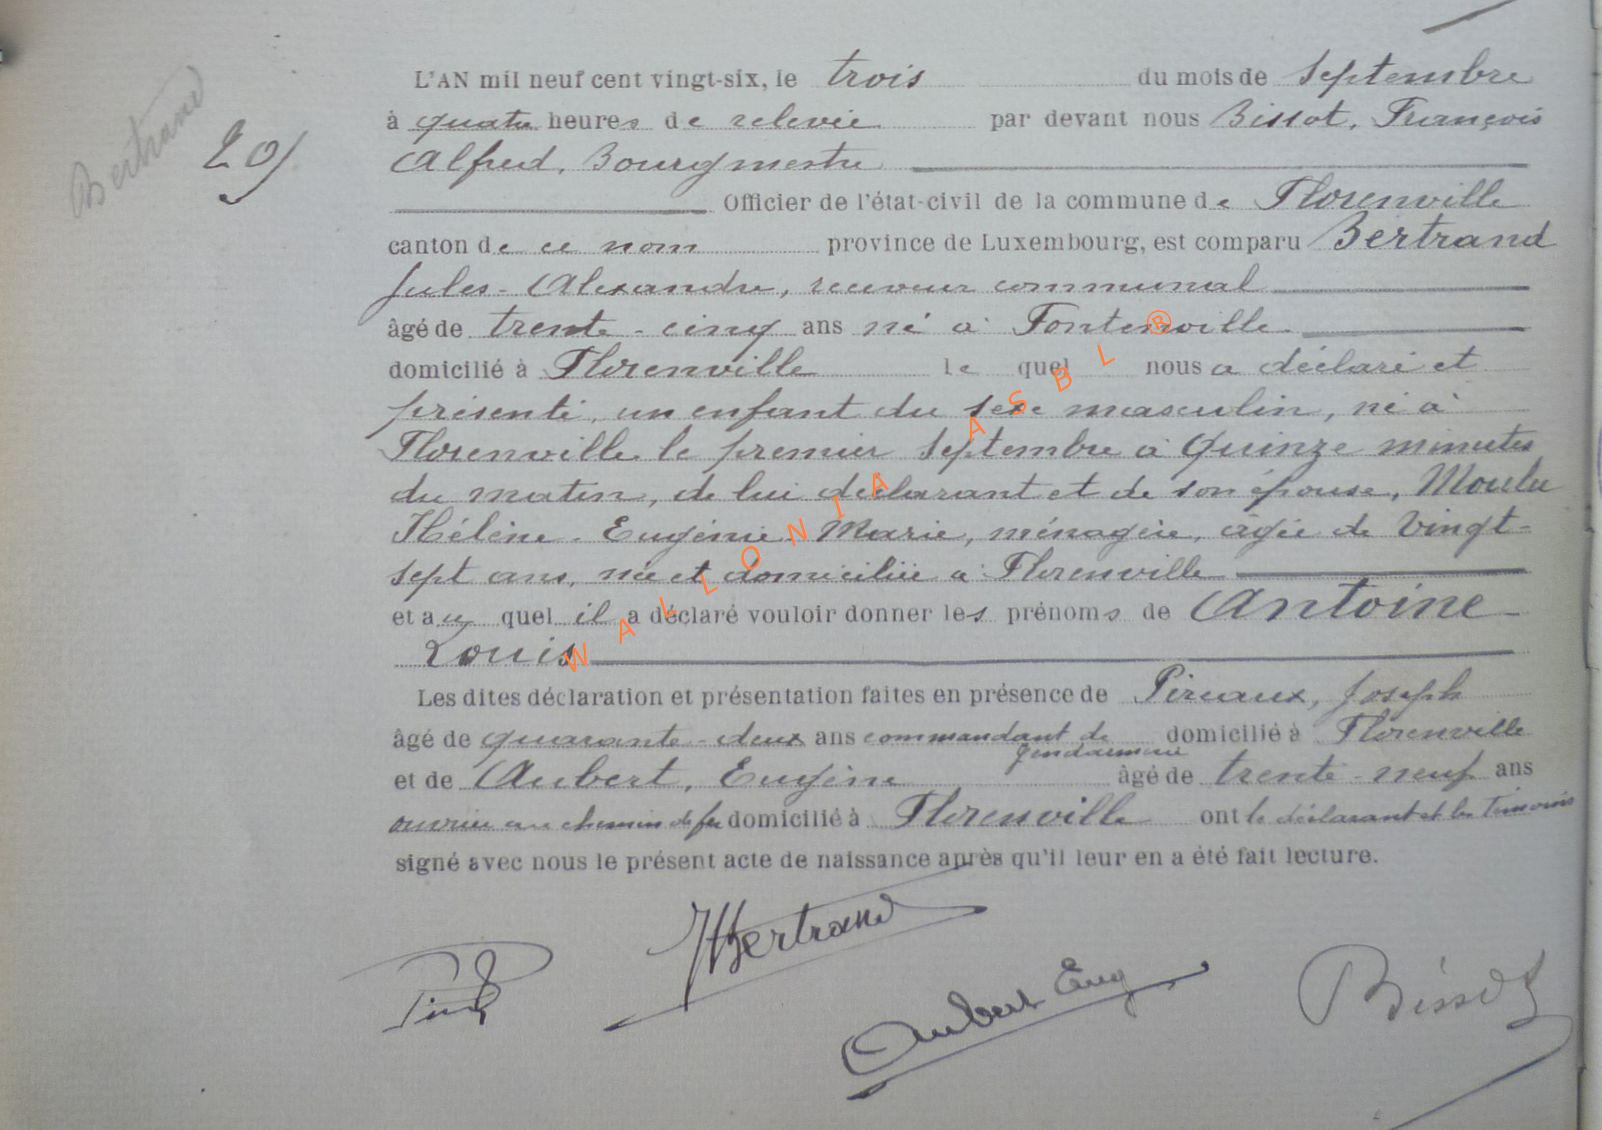 Bertrand
29
L'AN mil neuf cent vingt-six, le trois du mois de septembre
à quatre heures de relevée par devant nous Bissot, François
Alfred, Bourgmestre
Officier de l'état-civil de la commune de Florenville
canton de ce nom province de Luxembourg, est comparu Bertrand
Jules-Alexandre, receveur communal
âgé de trente-cinq ans né à Fontenoille
domicilié à Florenville le quel nous a déclaré et
présenté, un enfant du sexe masculin, né à
Florenville le premier septembre à Quinze minutes
du matin, de lui déclarant et de son épouse, Moulu
Hélène-Eugénie-Marie, ménagère, âgée de Vingt-
sept ans, née et domiciliée à Florenville
et auquel il a déclaré vouloir donner les prénoms de Antoine
Louis
Les dites déclaration et présentation faites en présence de Pireaux, Joseph
âgé de quarante-deux ans commandant de gendarmerie domicilié à Florenville
et de Aubert, Eugène âgé de trente-neuf ans
ouvrier au chemin de fer domicilié à Florenville ont le déclarant et les témoins
signé avec nous le présent acte de naissance après qu'il leur en a été fait lecture.
JBertrand
Aubert Eug
Bissot
WALLONIA ASBL ®